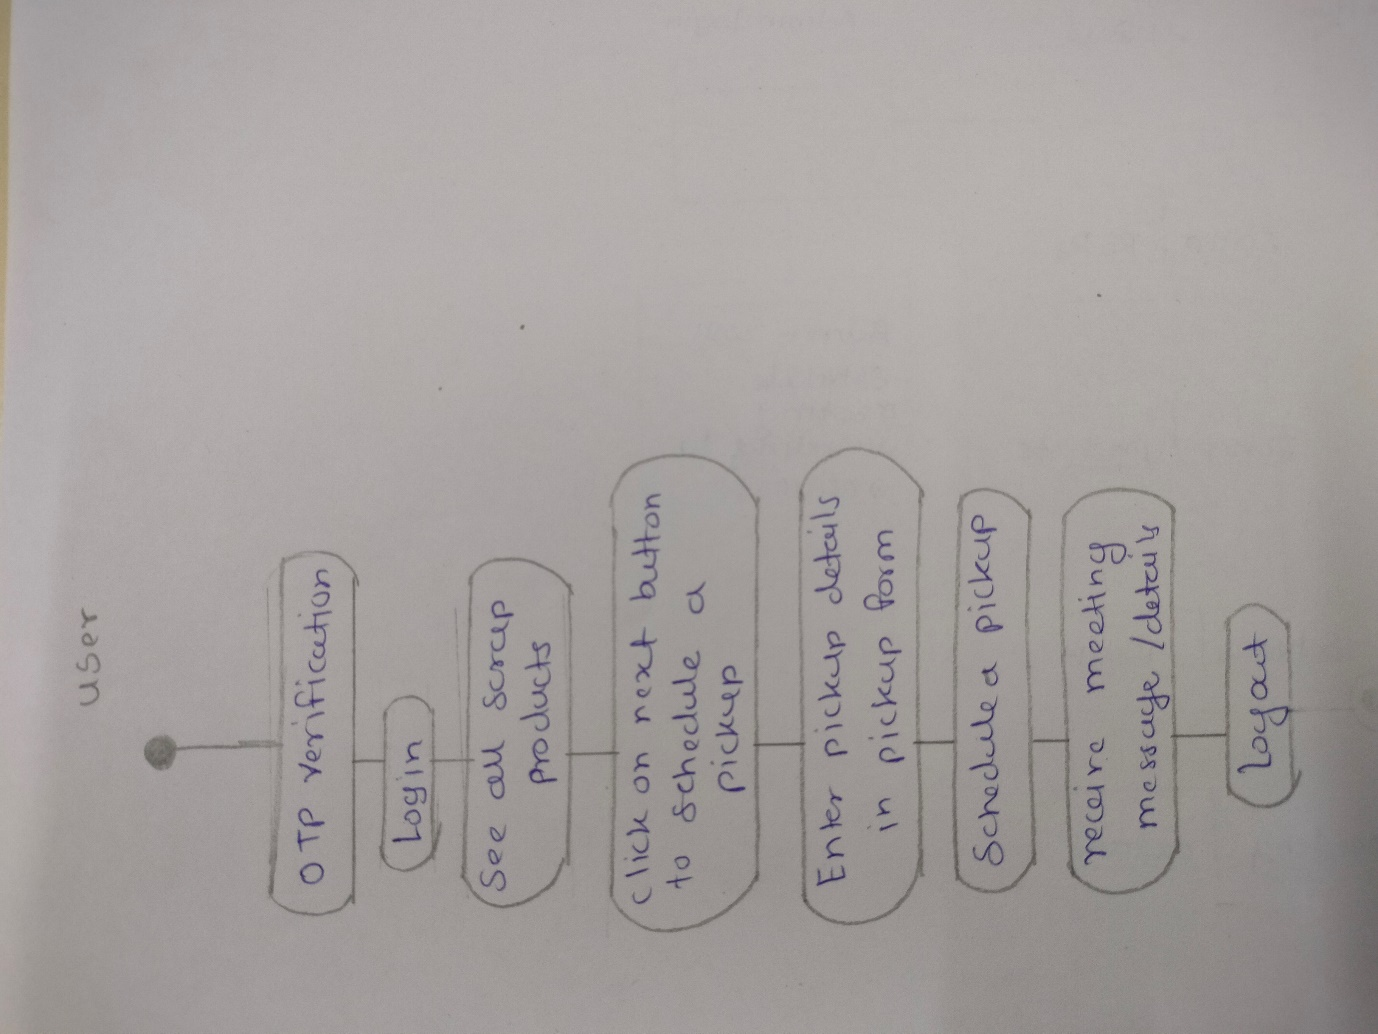 User
OTP verification
Login
See all scrap
products
Click on next button
to schedule a
pickup
Enter pickup details
in pickup form
Schedule a pickup
receive meeting
message / details
Logout